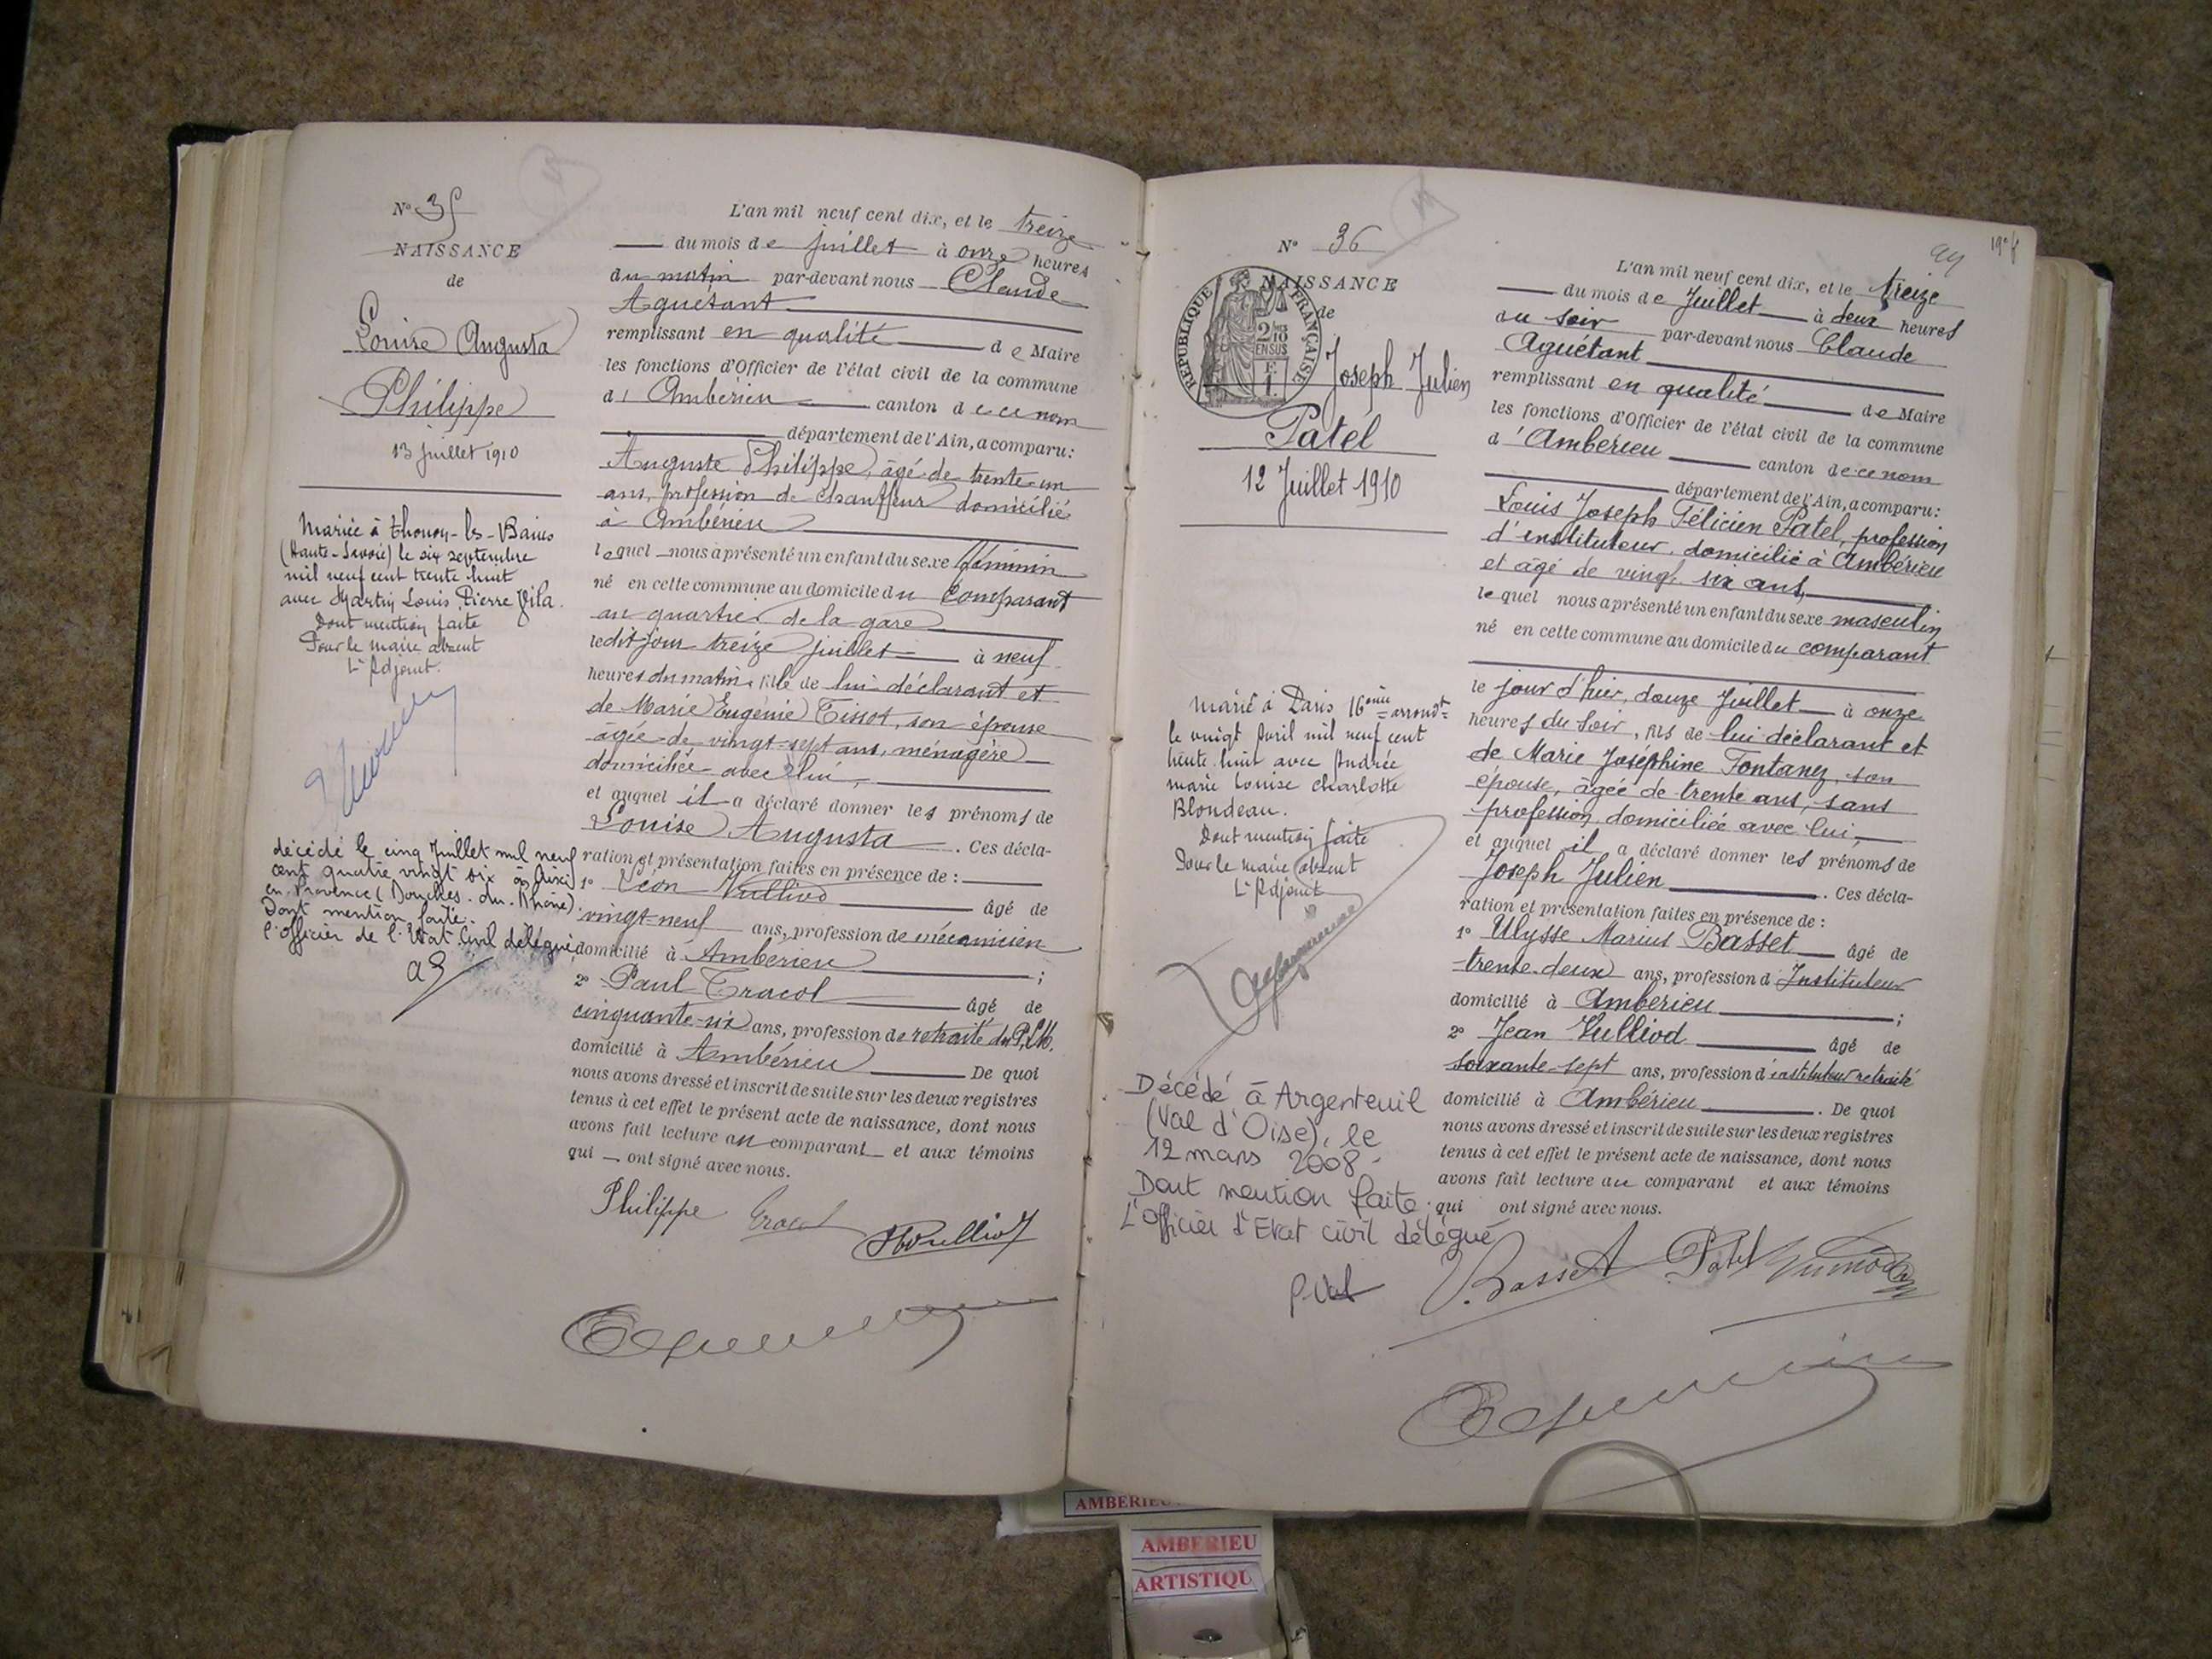 N° 35
NAISSANCE
de
Louise Augusta
Philippe
13 Juillet 1910
Mariée à Thonon-les-Bains
(Haute-Savoie) le six septembre
mil neuf cent trente huit
avec Martin Louis Pierre Vila.
Dont mention faite
Pour le maire absent
L'Adjoint.
décédé le cinq Juillet mil neuf
cent quatre vingt six à Aix
en Provence (Bouches du Rhône)
Dont mention faite.
l'officier de l'Etat Civil délégué
L'an mil neuf cent dix, et le treize
du mois de juillet à onze heures
du matin par-devant nous Claude
Aguétant
remplissant en qualité de Maire
les fonctions d'Officier de l'état civil de la commune
d'Ambérieu canton de ce nom
département de l'Ain, a comparu:
Auguste Philippe, âgé de trente-un
ans, profession de chauffeur domicilié
à Ambérieu
lequel nous a présenté un enfant du sexe féminin
né en cette commune au domicile du Comparant
au quartier de la gare
ledit jour treize juillet à neuf
heures du matin, fille de lui déclarant et
de Marie Eugénie Tissot, son épouse
âgée de vingt-sept ans, ménagère
domiciliée avec lui,
et auquel il a déclaré donner les prénoms de
Louise Augusta . Ces décla-
ration et présentation faites en présence de :
1° Léon Vulliod âgé de
vingt-neuf ans, profession de mécanicien
domicilié à Ambérieu ;
2° Paul Tracol âgé de
cinquante-six ans, profession de retraité du P.L.M.
domicilié à Ambérieu De quoi
nous avons dressé et inscrit de suite sur les deux registres
tenus à cet effet le présent acte de naissance, dont nous
avons fait lecture au comparant et aux témoins
qui ont signé avec nous.
Philippe Tracol Vulliod
N° 36
NAISSANCE
de
RÉPUBLIQUE FRANÇAISE
2/10
EN SUS
Joseph Julien
Patel
12 Juillet 1910
Marié à Paris 16ème arrondt
le vingt Avril mil neuf cent
trente huit avec Andrée
Marie Louise Charlotte
Blondeau.
Dont mention faite
Pour le maire absent
L'Adjoint
Décédé à Argenteuil
(Val d'Oise), le
12 mars 2008.
Dont mention faite.
L'Officier d'Etat civil délégué
99
L'an mil neuf cent dix, et le treize
du mois de Juillet à deux heures
du soir par-devant nous Claude
Aguétant
remplissant en qualité de Maire
les fonctions d'Officier de l'état civil de la commune
d'Ambérieu canton de ce nom
département de l'Ain, a comparu:
Louis Joseph Félicien Patel, profession
d'instituteur, domicilié à Ambérieu
et âgé de vingt six ans,
lequel nous a présenté un enfant du sexe masculin
né en cette commune au domicile du comparant
le jour d'hier, douze Juillet à onze
heures du soir, fils de lui déclarant et
de Marie Joséphine Fontany, son
épouse, âgée de trente ans, sans
profession, domiciliée avec lui,
et auquel il a déclaré donner les prénoms de
Joseph Julien . Ces décla-
ration et présentation faites en présence de :
1° Ulysse Marius Basset âgé de
trente-deux ans, profession d'Instituteur
domicilié à Ambérieu ;
2° Jean Vulliod âgé de
soixante-sept ans, profession d'instituteur retraité
domicilié à Ambérieu . De quoi
nous avons dressé et inscrit de suite sur les deux registres
tenus à cet effet le présent acte de naissance, dont nous
avons fait lecture au comparant et aux témoins
qui ont signé avec nous.
Basset Patel
AMBERIEU
AMBERIEU
ARTISTIQU